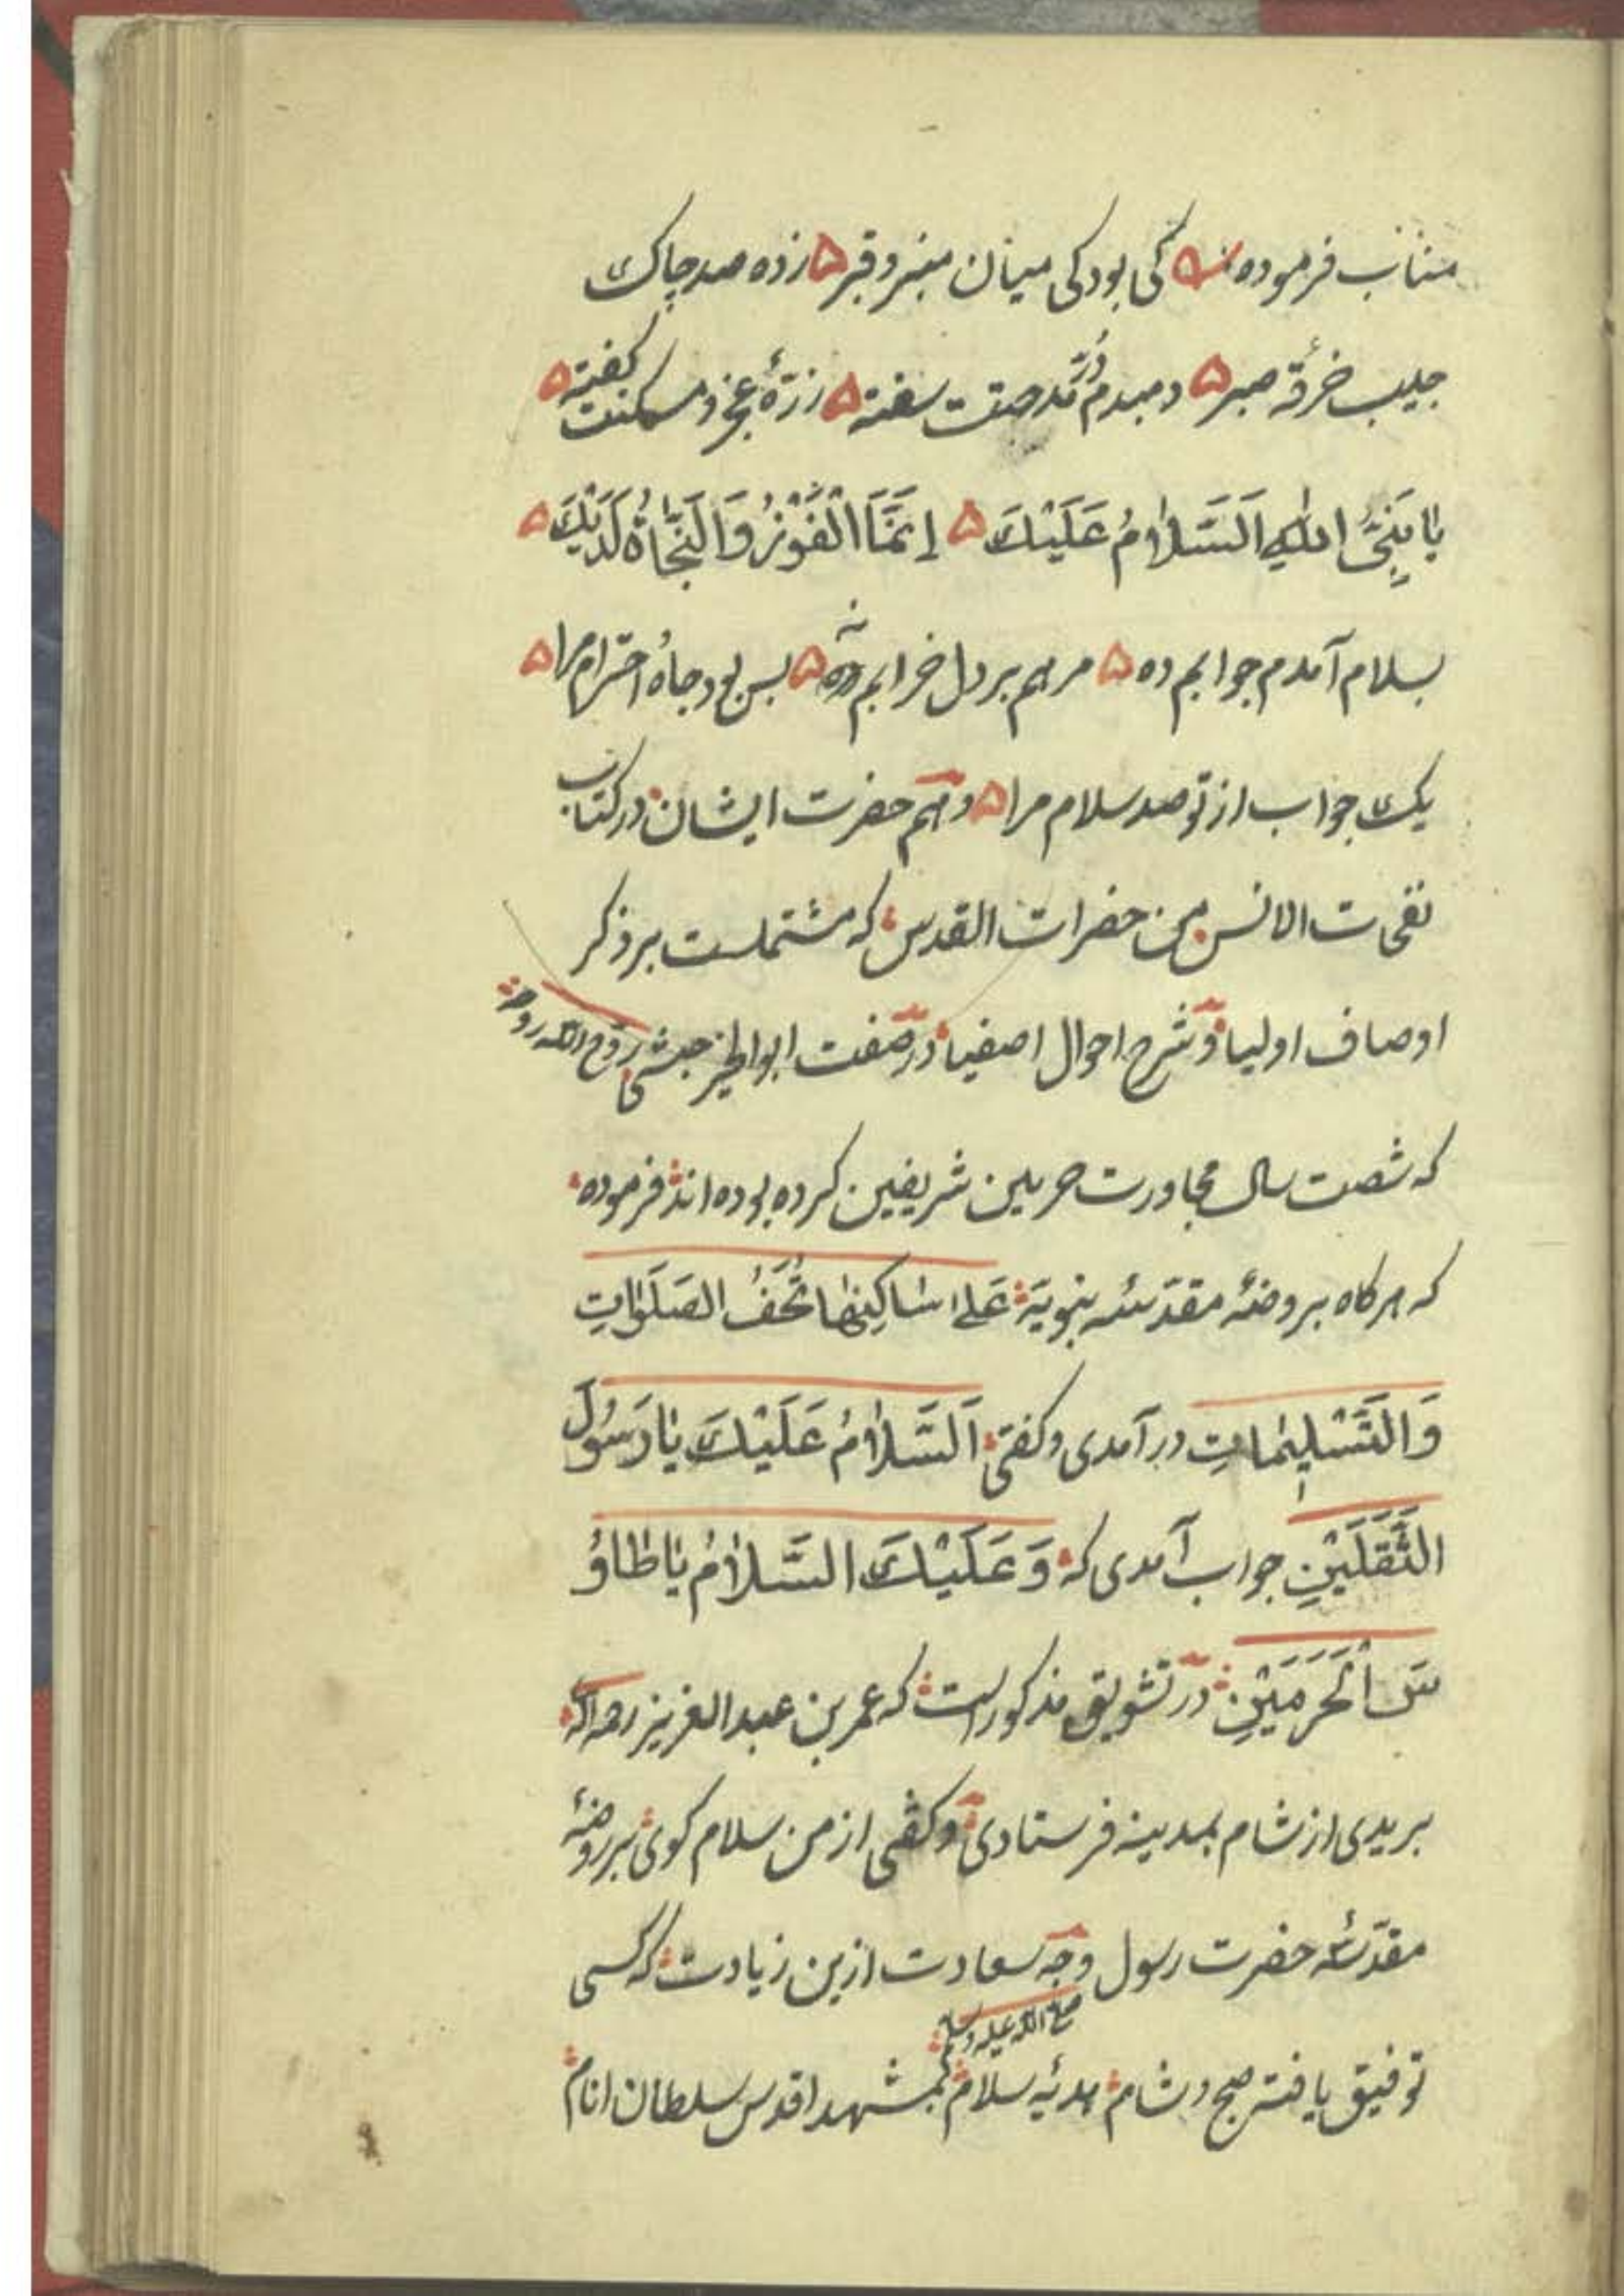 مناب فرموده کی بود کی میان منبر و قبر ۵ زده صد چاک
جیب خرقه صبر ۵ دمبدم در مدحتت سفته ۵ زرهٔ عجز و مسکنت گفته ۵
یا نَبِیَّ اللهِ اَلسَّلامُ عَلَیْكَ ۵ اِنَّمَا الْفَوْزُ وَالنَّجَاةُ لَدَیْكَ ۵
بسلام آمدم جوابم ده ۵ مرهم بر دل خرابم نه ۵ بس بود جاه احترام مرا ۵
یک جواب از تو صد سلام مرا ۵ و هم حضرت ایشان در کتاب
نفحات الانس من حضرات القدس که مشتملست بر ذکر
اوصاف اولیا و شرح احوال اصفیا در صفت ابو الخیر حبشی روح الله روحه
که شصت سال مجاورت حرمین شریفین کرده بوده اند فرموده
که هرکاه بروضهٔ مقدسهٔ نبویة عَلٰی سَاکِنِهَا تُحَفُ الصَلَوٰاتِ
وَالتَّسْلِیمَاتِ در آمدی و کفتی اَلسَّلامُ عَلَیْكَ یَا رَسُولَ
الثَّقَلَیْنِ جواب آمدی که وَعَلَیْكَ السَّلامُ یَا طَاوُ
سَ الْحَرَمَیْنِ در تشویق مذکور است که عمر بن عبد العزیز رحمه الله
بریدی از شام بمدینه فرستادی و کفتی از من سلام کوی بر روضهٔ
مقدسهٔ حضرت رسول صلی الله علیه وسلم وچه سعادت ازین زیادت که کسی
توفیق یافته صبح و شام هدیهٔ سلام بمشهد اقدس سلطان انام